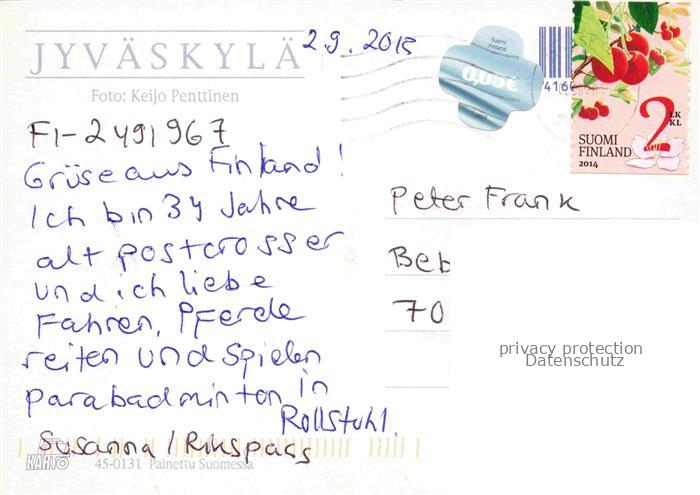 JYVÄSKYLÄ
2.9.2015
Foto: Keijo Penttinen
Suomi
Finland
0,05€
4160
2 LK
KL
SUOMI
FINLAND
2014
FI-2491967
Grüse aus Finland!
Ich bin 34 Jahre
alt postcrosser
und ich liebe
Fahren, Pferde
reiten und spielen
parabadminton in
Rollstuhl.
Susanna /
Peter Frank
Beb
70
privacy protection
Datenschutz
KARTO
45-0131 Painettu Suomessa